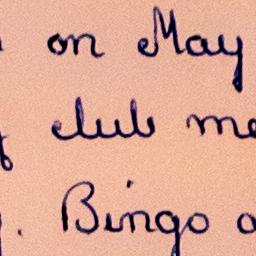 on May
club me
. Bingo